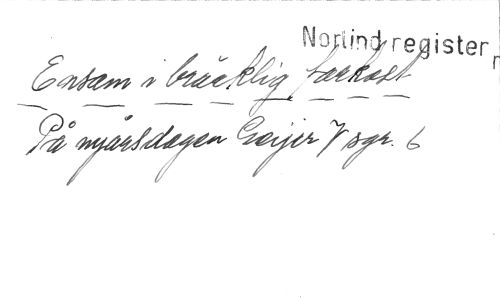 Norlind register
Ensam i bräcklig farkost
På nyårsdagen Geijer V sgr. 6